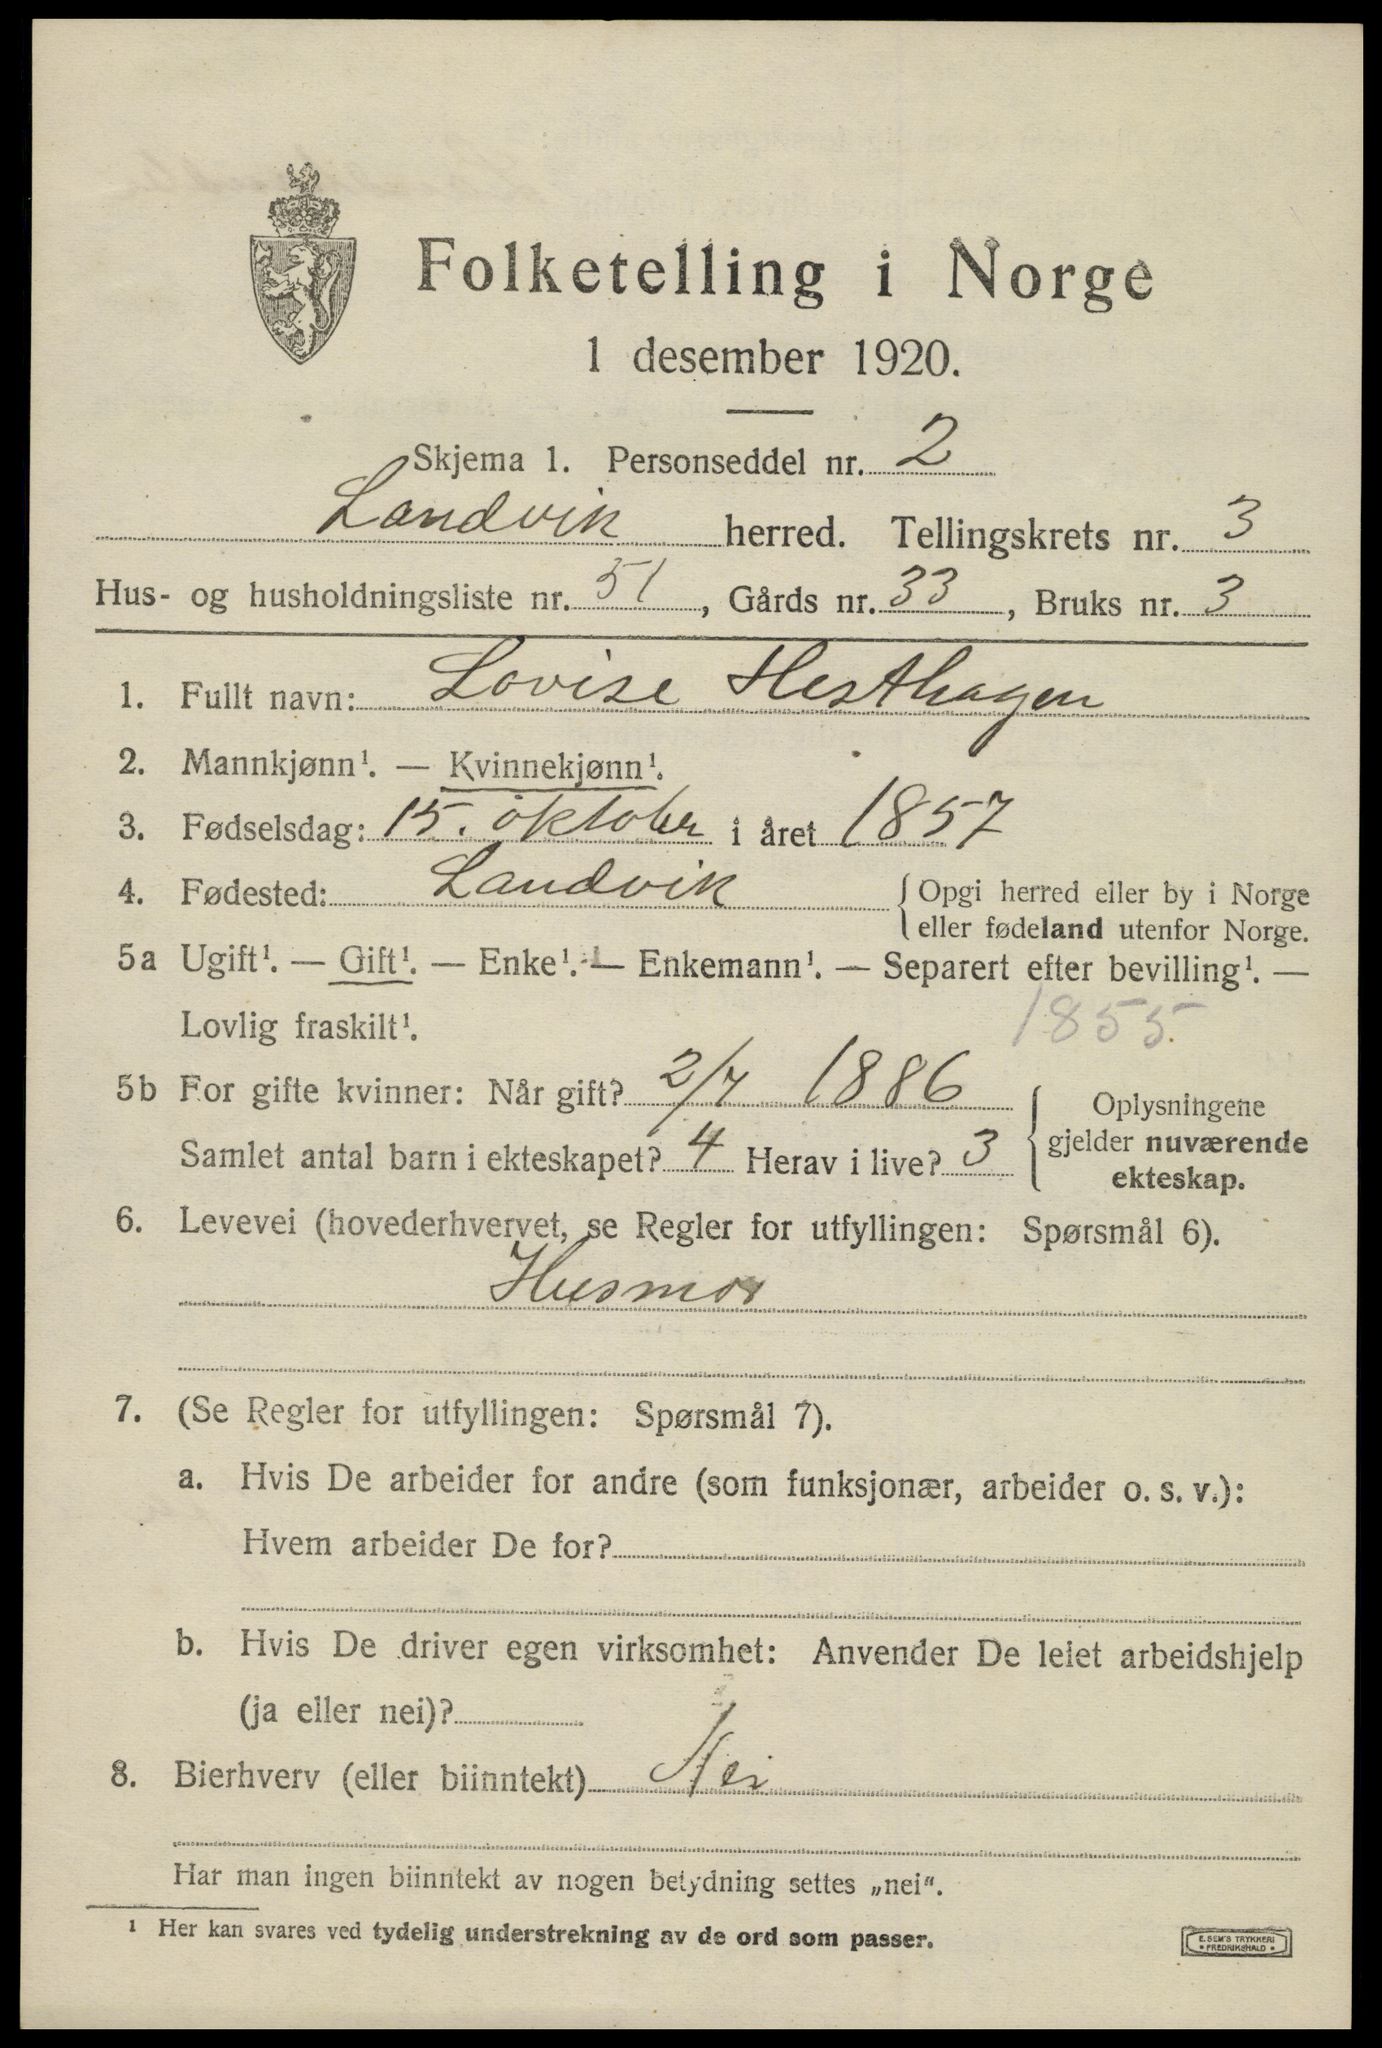 Folketelling i Norge
1 desember 1920.
Skjema 1. Personseddel nr. 2
Landvik herred. Tellingskrets nr. 3
Hus- og husholdningsliste nr. 51, Gårds nr. 33, Bruks nr. 3
1. Fullt navn: Lovise Hesthagen
2. Mannkjønn¹. — Kvinnekjønn¹.
3. Fødselsdag: 15. oktober i året 1857
4. Fødested: Landvik { Opgi herred eller by i Norge
eller fødeland utenfor Norge.
5a Ugift¹. — Gift¹. — Enke¹. — Enkemann¹. — Separert efter bevilling¹. —
Lovlig fraskilt¹. 1855.
5b For gifte kvinner: Når gift? 2/7 1886 { Oplysningene
gjelder nuværende
ekteskap.
Samlet antal barn i ekteskapet? 4 Herav i live? 3
6. Levevei (hovederhvervet, se Regler for utfyllingen: Spørsmål 6).
Husmor
7. (Se Regler for utfyllingen: Spørsmål 7).
a. Hvis De arbeider for andre (som funksjonær, arbeider o. s. v.):
Hvem arbeider De for?
b. Hvis De driver egen virksomhet: Anvender De leiet arbeidshjelp
(ja eller nei)?
8. Bierhverv (eller biinntekt) Nei
Har man ingen biinntekt av nogen betydning settes „nei“.
¹ Her kan svares ved tydelig understrekning av de ord som passer.
E. SEM'S TRYKKERI
FREDRIKSHALD